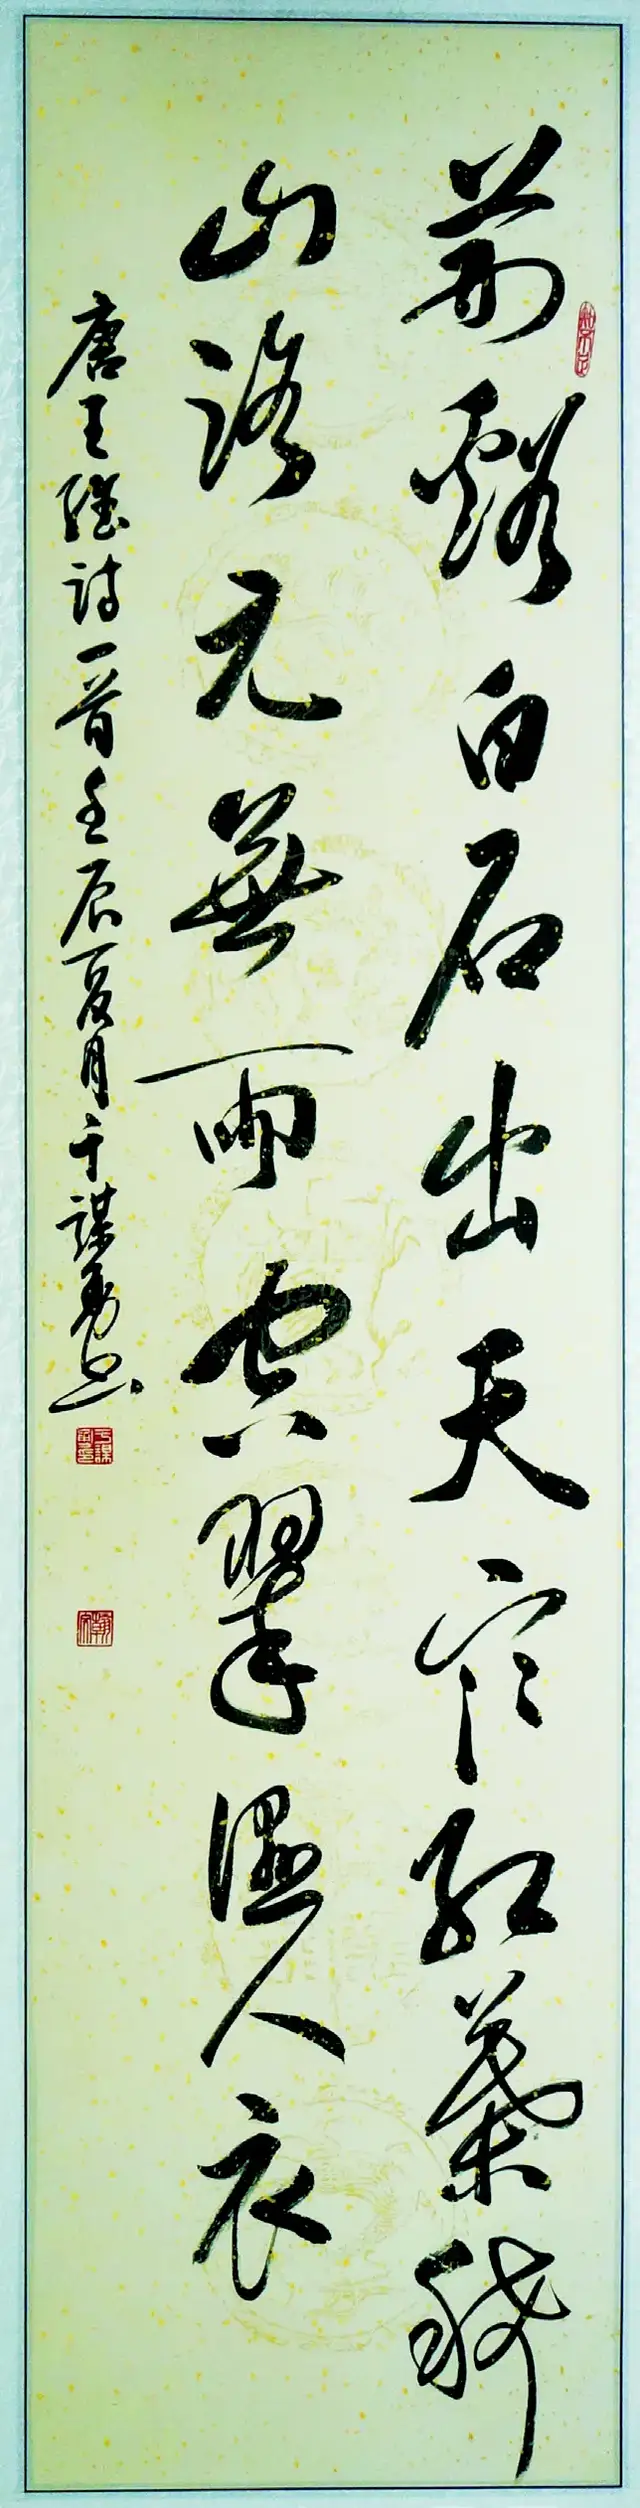 荊谿白石出天寒紅葉稀
山路元無雨空翠濕人衣
唐王維詩一首壬辰夏月于謀勇書